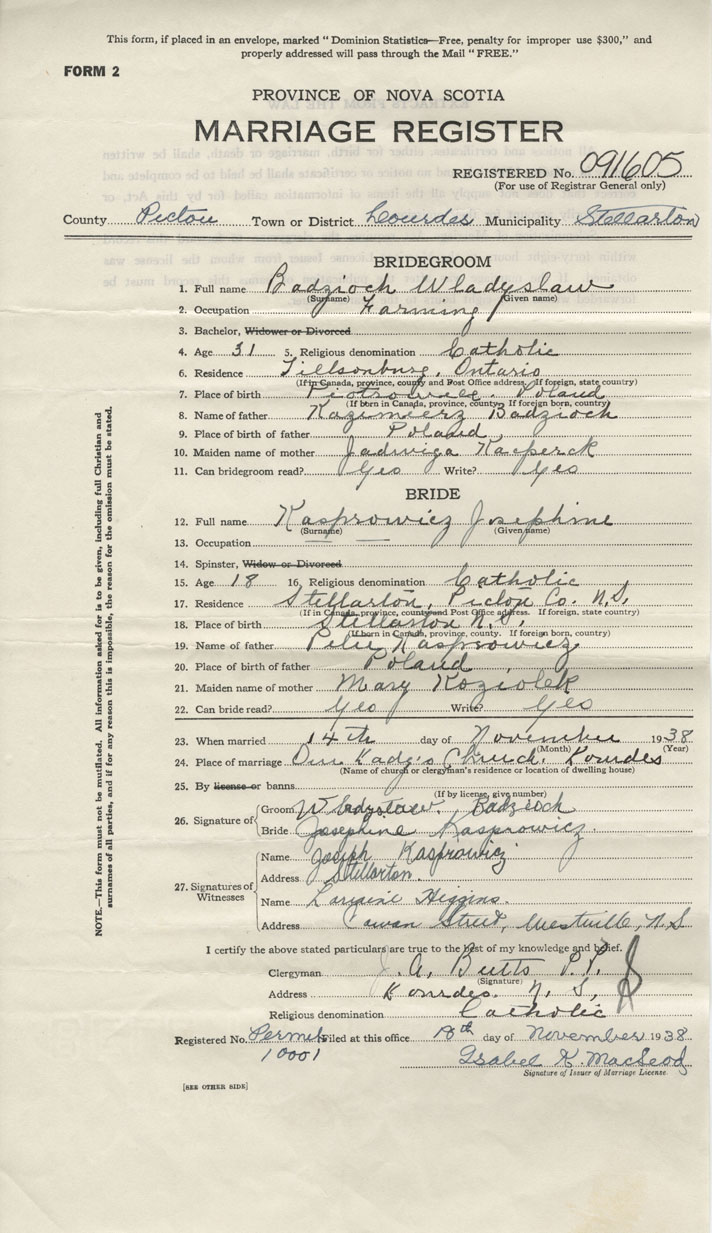 This form, if placed in an envelope, marked "Dominion Statistics—Free, penalty for improper use $300," and
properly addressed will pass through the Mail "FREE."
FORM 2
PROVINCE OF NOVA SCOTIA
MARRIAGE REGISTER
REGISTERED No. 091605
(For use of Registrar General only)
County Pictou Town or District Lourdes Municipality Stellarton
BRIDEGROOM
1. Full name Badzioch Wladyslaw
(Surname) (Given name)
2. Occupation Farming
3. Bachelor, Widower or Divorced
4. Age 31 5. Religious denomination Catholic
6. Residence Tillsonburg, Ontario
(If in Canada, province, county and Post Office address. If foreign, state country)
7. Place of birth Poland
(If born in Canada, province, county. If foreign born, country)
8. Name of father Kazimierz Badzioch
9. Place of birth of father Poland
10. Maiden name of mother Jadwiga Kacperck
11. Can bridegroom read? Yes Write? Yes
BRIDE
12. Full name Kasprowicz Josephine
(Surname) (Given name)
13. Occupation
14. Spinster, Widow or Divorced
15. Age 18 16. Religious denomination Catholic
17. Residence Stellarton, Pictou Co. N.S.
(If in Canada, province, county and Post Office address. If foreign, state country)
18. Place of birth Stellarton N.S.
(If born in Canada, province, county. If foreign born, country)
19. Name of father Kasprowicz
20. Place of birth of father Poland
21. Maiden name of mother Mary Koziolek
22. Can bride read? Yes Write? Yes
23. When married 14th day of November 1938
(Month) (Year)
24. Place of marriage Our Lady's Church. Lourdes
(Name of church or clergyman's residence or location of dwelling house)
25. By license or banns
(If by license, give number)
26. Signature of
Groom Wladyslaw Badzioch
Bride Josephine Kasprowicz.
27. Signatures of Witnesses
Name Joseph Kasprowicz
Address Stellarton.
Name Lorraine Higgins.
Address Cowan Street, Westville, N.S
I certify the above stated particulars are true to the best of my knowledge and belief.
Clergyman J. A. Butts P.P.
(Signature)
Address Lourdes. N. S,
Religious denomination Catholic
Registered No. Permit Filed at this office 18th day of November 1938
10001
Isabel K. MacLeod
Signature of Issuer of Marriage License.
[SEE OTHER SIDE]
NOTE.—This form must not be mutilated. All information asked for is to be given, including full Christian and
surnames of all parties, and if for any reason this is impossible, the reason for the omission must be stated.